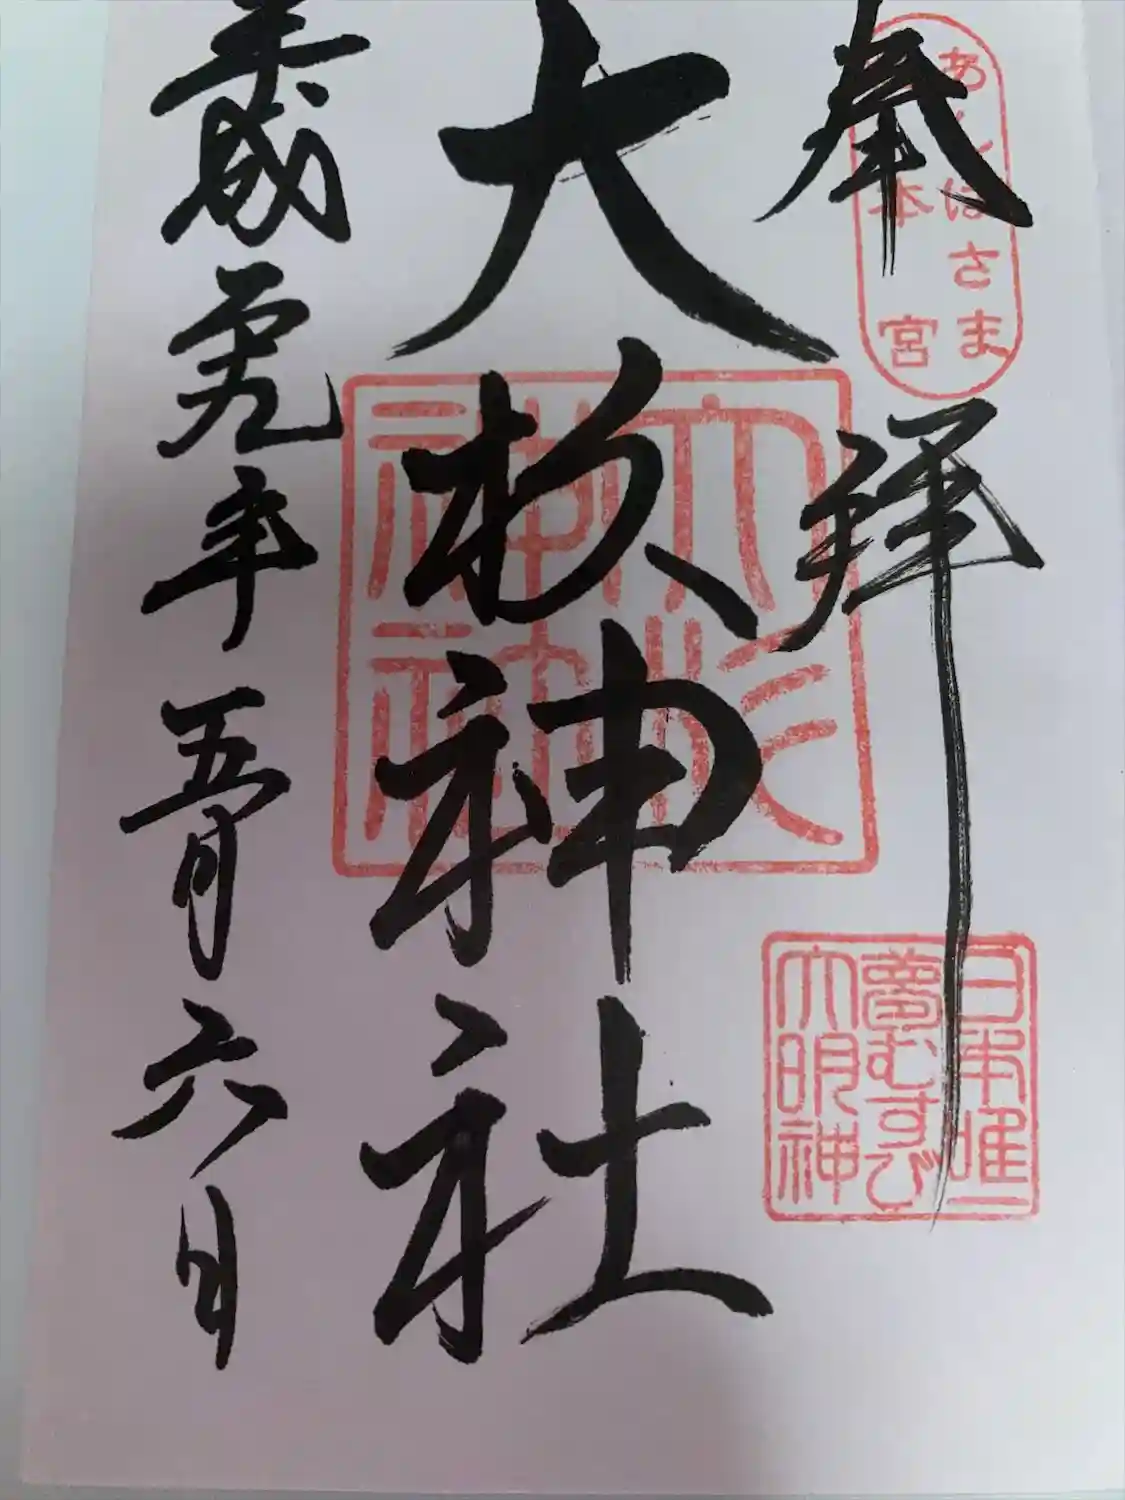 奉拝
あんばさま
本宮
大杦神社
大杉神社
日本唯一
夢むすび
大明神
平成二十九年五月六日